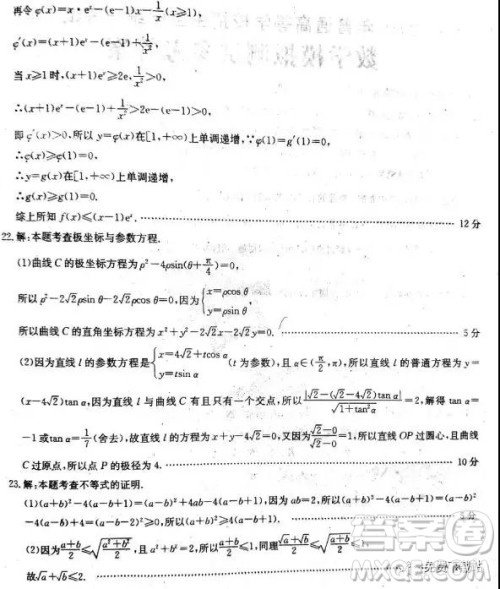 再令φ(x)=x·eˣ-(e-1)x-1/x(x≥1),
φ′(x)=(x+1)eˣ-(e-1)+1/x²,
当x≥1时,(x+1)eˣ≥2e,1/x²>0,
∴(x+1)eˣ-(e-1)+1/x²>2e-(e-1)>0,
即φ′(x)>0,所以y=φ(x)在[1,+∞)上单调递增,∵φ(1)=g′(1)=0,
∴φ(x)≥φ(1)=0,
∴y=g(x)在[1,+∞)上单调递增,
∴g(x)≥g(1)=0.
综上所知f(x)≤(x-1)eˣ. 12分
22.解:本题考查极坐标与参数方程.
(1)曲线C的极坐标方程为ρ²-4ρsin(θ+π/4)=0,
所以ρ²-2√2ρsin θ-2√2ρcos θ=0,因为{x=ρcos θ y=ρsin θ
所以曲线C的直角坐标方程为x²+y²-2√2x-2√2y=0. 5分
(2)因为直线l的参数方程是{x=4√2+tcos α y=tsin α(t为参数),且α∈(π/2,π),所以直线l的普通方程为y=
(x-4√2)tan α,因为直线l与曲线C有且只有一个交点,所以|√2-(√2-4√2)tan α|/√(1+tan²α)=2,解得tan α=
-1或tan α=1/7(舍去),故直线l的方程为x+y-4√2=0,又因为(√2-0)/(√2-0)=1,所以直线OP过圆心,且曲线
C过原点,所以点P的极径为4. 10分
23.解:本题考查不等式的证明.
(1)(a+b)²-4(a+b-1)=(a-b)²+4ab-4(a+b-1),因为ab=2,所以(a+b)²-4(a+b-1)=(a-b)²
-4(a-b)+4=(a-b-2)²≥0,所以(a+b)²≥4(a+b-1). 5分
(2)因为(a+b)/2≤√((a²+b²)/2),且a²+b²=2,所以(a+b)/2≤1,同理(√a+√b)/2≤√((a+b)/2)≤1,
故√a+√b≤2.
答案圈